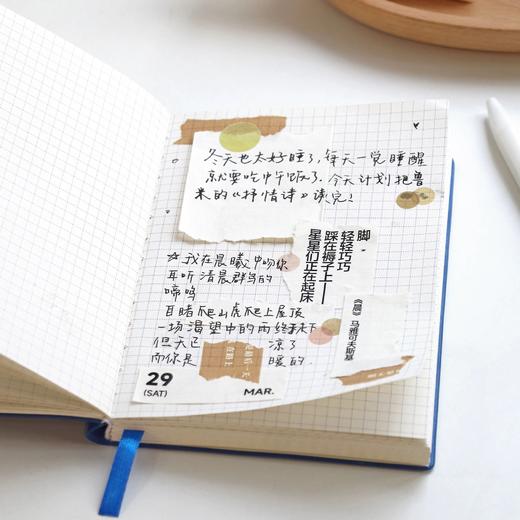 冬天也太好睡了，每天一觉睡醒
就要吃中午饭了。今天计划把鲁
米的《抒情诗》读完！
脚-
轻轻巧巧
踩在褥子上——
星星们正在起床
《晨》马雅可夫斯基
☆我在晨曦中吻你
耳听清晨群鸟的
啼鸣
目睹爬山虎爬上屋顶
一场渴望中的雨终未下
但天已 凉了
而你是 暖的.
29
(SAT)
MAR.